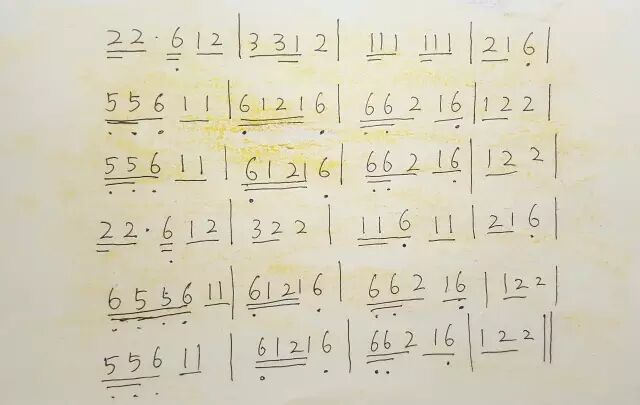 22·612|3312|111 111|216|
556 11|61216|662 16|122|
556 11|61216|662 16|122|
22·612|322|116 11|216|
6556 11|61216|662 16|122|
556 11|61216|662 16|122||